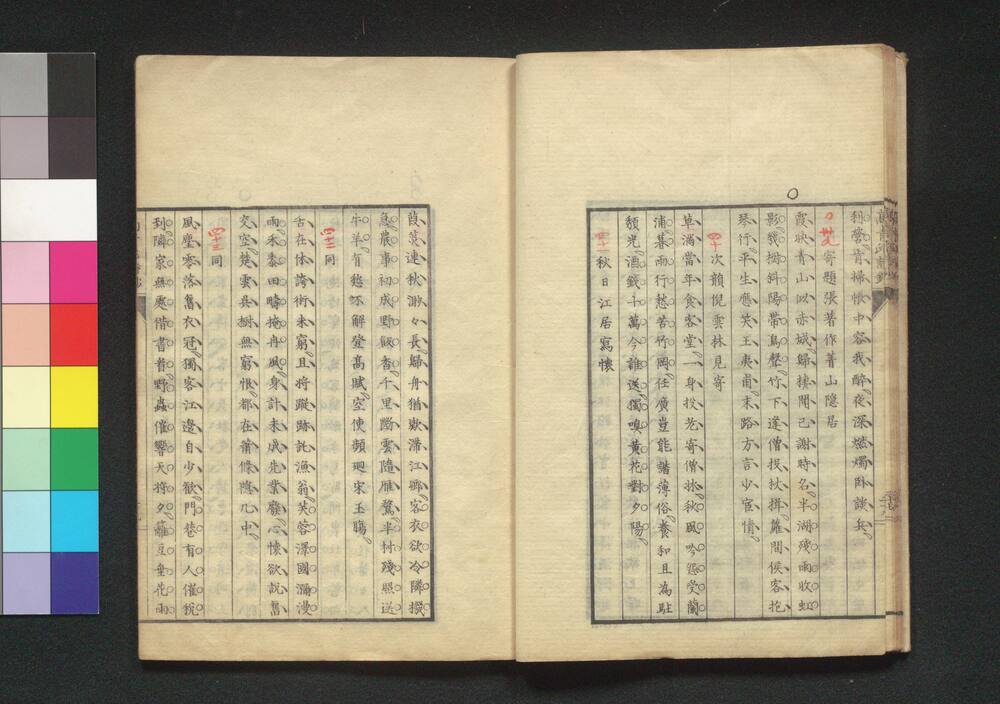 利驚胥掃帳中容我醉夜深燃燭臥談兵
卅九 寄題張著作菁山隱居
霞映青山似赤城歸棲聞已謝時名半湖殘雨收虹
影幾樹斜陽帶鳥聲竹下逢僧投杖揖蘿間候客抱
琴行平生應笑王夷甫末路方言少宦情
四十 次韻倪雲林見寄
草滿當年食客堂一身投老寄僧牀秋風吟怨受蘭
浦暮雨行愁苦竹岡任廣豈能諧薄俗養和且為駐
頹光酒錢十萬今誰送獨嗅黃花對夕陽
四十一 秋日江居寫懷
葭菼連秋渺々長歸舟猶歎滯江鄉客衣欲冷隣機
急農事初成野飯香千里斷雲隨雁鶩半村殘照送
牛羊有愁不解登高賦空使頻廻宋玉腸
四十二 同
舌在休誇術未窮且將蹤跡託漁翁芙蓉澤國瀰漫
雨禾黍田疇掩冉風身計未成先業廢心懷欲說舊
交空楚雲吳樹無窮恨都在蕭條隱几中
四十三 同
風塵零落舊衣冠獨客江邊自少歡門巷有人催稅
到隣家無處借書看野蟲催響天將夕籬豆垂花雨